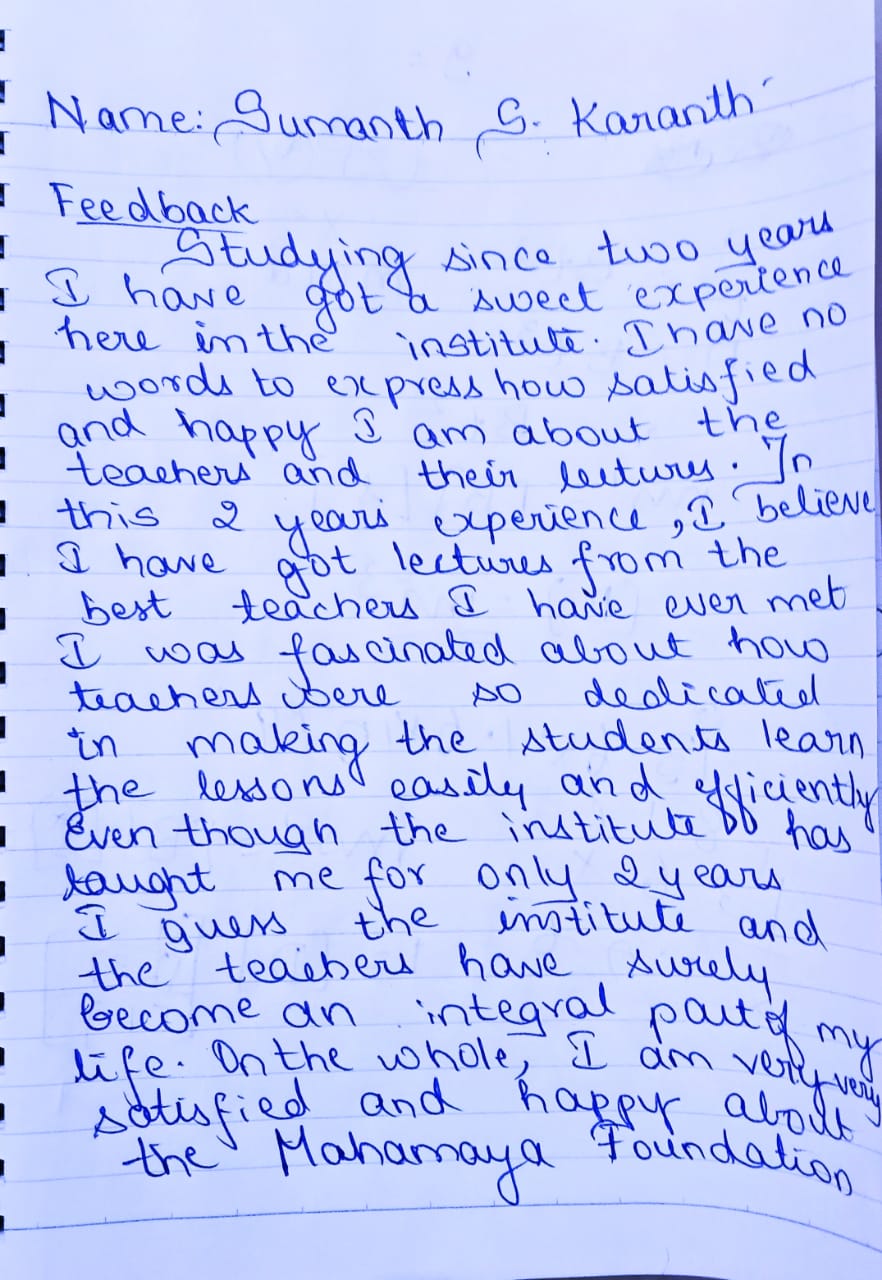 Name: Sumanth S. Karanth
Feedback
Studying since two years
I have got a sweet experience
here in the institute. I have no
words to express how satisfied
and happy I am about the
teachers and their lectures. In
this 2 years experience, I believe
I have got lectures from the
best teachers I have ever met
I was fascinated about how
teachers were so dedicated
in making the students learn
the lessons easily and efficiently
Even though the institute has
taught me for only 2 years
I guess the institute and
the teachers have surely
become an integral part of my
life. On the whole, I am very very
satisfied and happy about
the Mahamaya Foundation